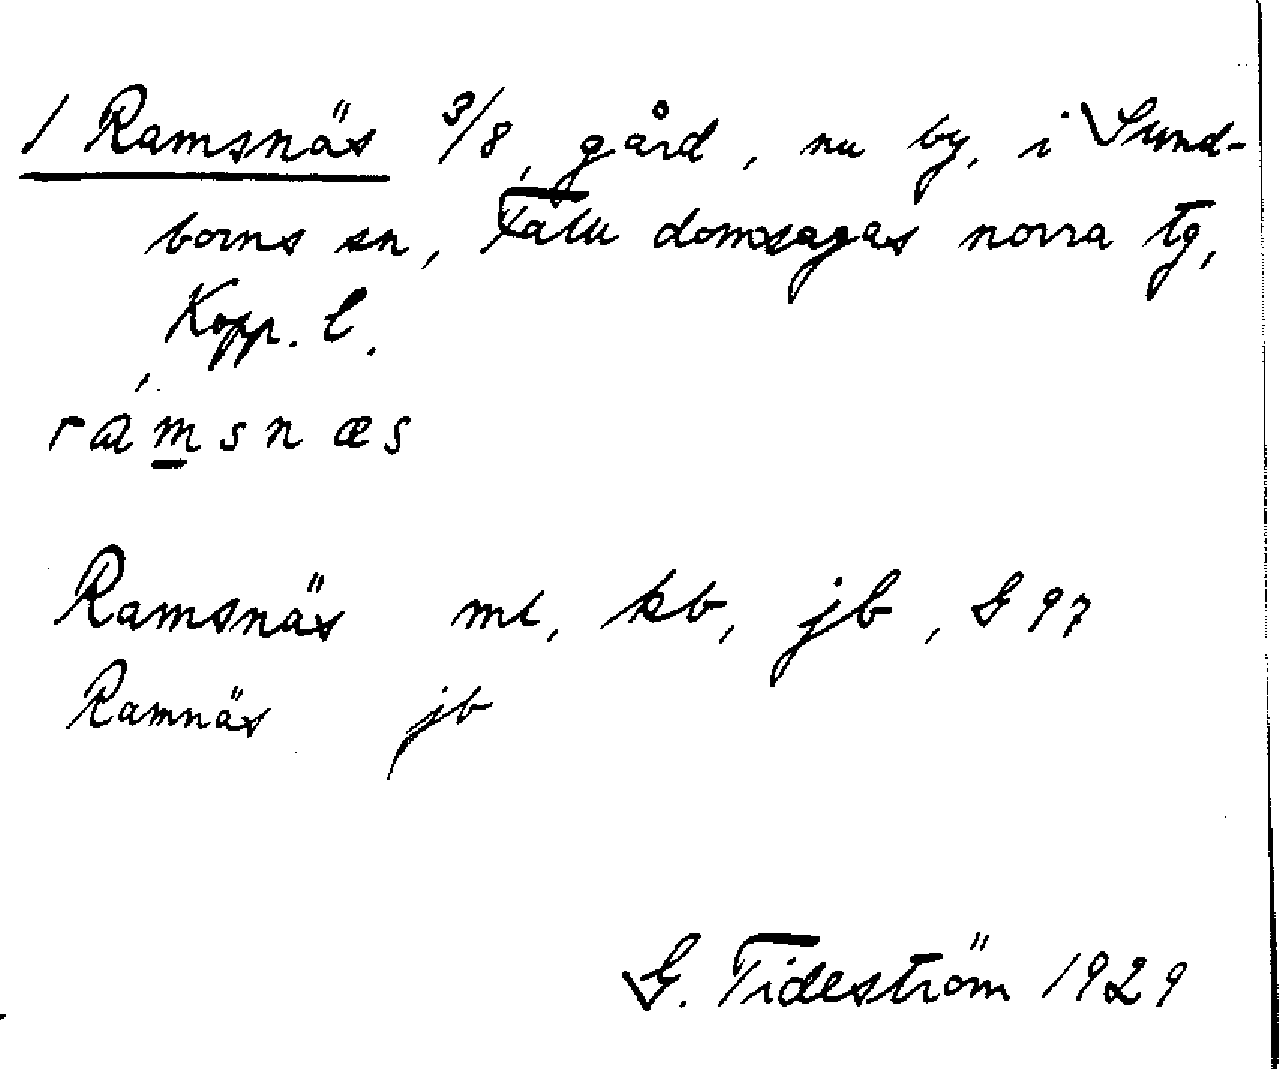 1 Ramsnäs 3/8, gård, nu by, i Sund-
borns sn, Falu domsagas norra tg,
Kopp. l.
ramsnæs
Ramsnäs ml, kb, jb, G 97
Ramnäs jb
G. Tideström 1929